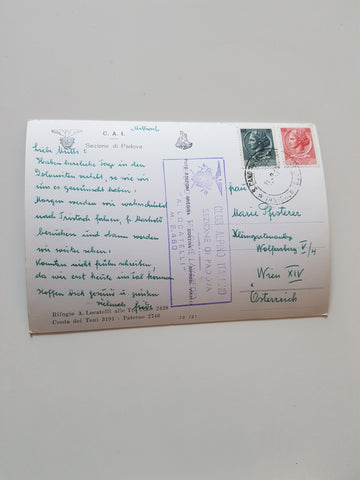 C. A. I.
Sezione di Padova
Mittwoch
Liebe Mutti!
Haben herrliche Tage in den
Dolomiten erlebt, so wie wir
uns es gewünscht haben!
Morgen werden wir wahrscheinlich
nach Tristach fahren, fr.
besuchen und dann werden
wir weiter sehen!
Konnten nicht früher schreiben,
da wir erst heute ins Tal kamen.
Hoffen dich gesund u. grüßen
vielmals
Rifugio A. Locatelli alle Tre Cime 2438
Croda dei Toni 3191 - Paterno 2746
CLUB ALPINO ITALIANO
SEZIONE DI PADOVA
RIFUGIO
"A. LOCATELLI"
M. 2460
Frau
Marie Pfisterer
Kleingartenanlage
Wolfersberg V/4
Wien XIV
Österreich